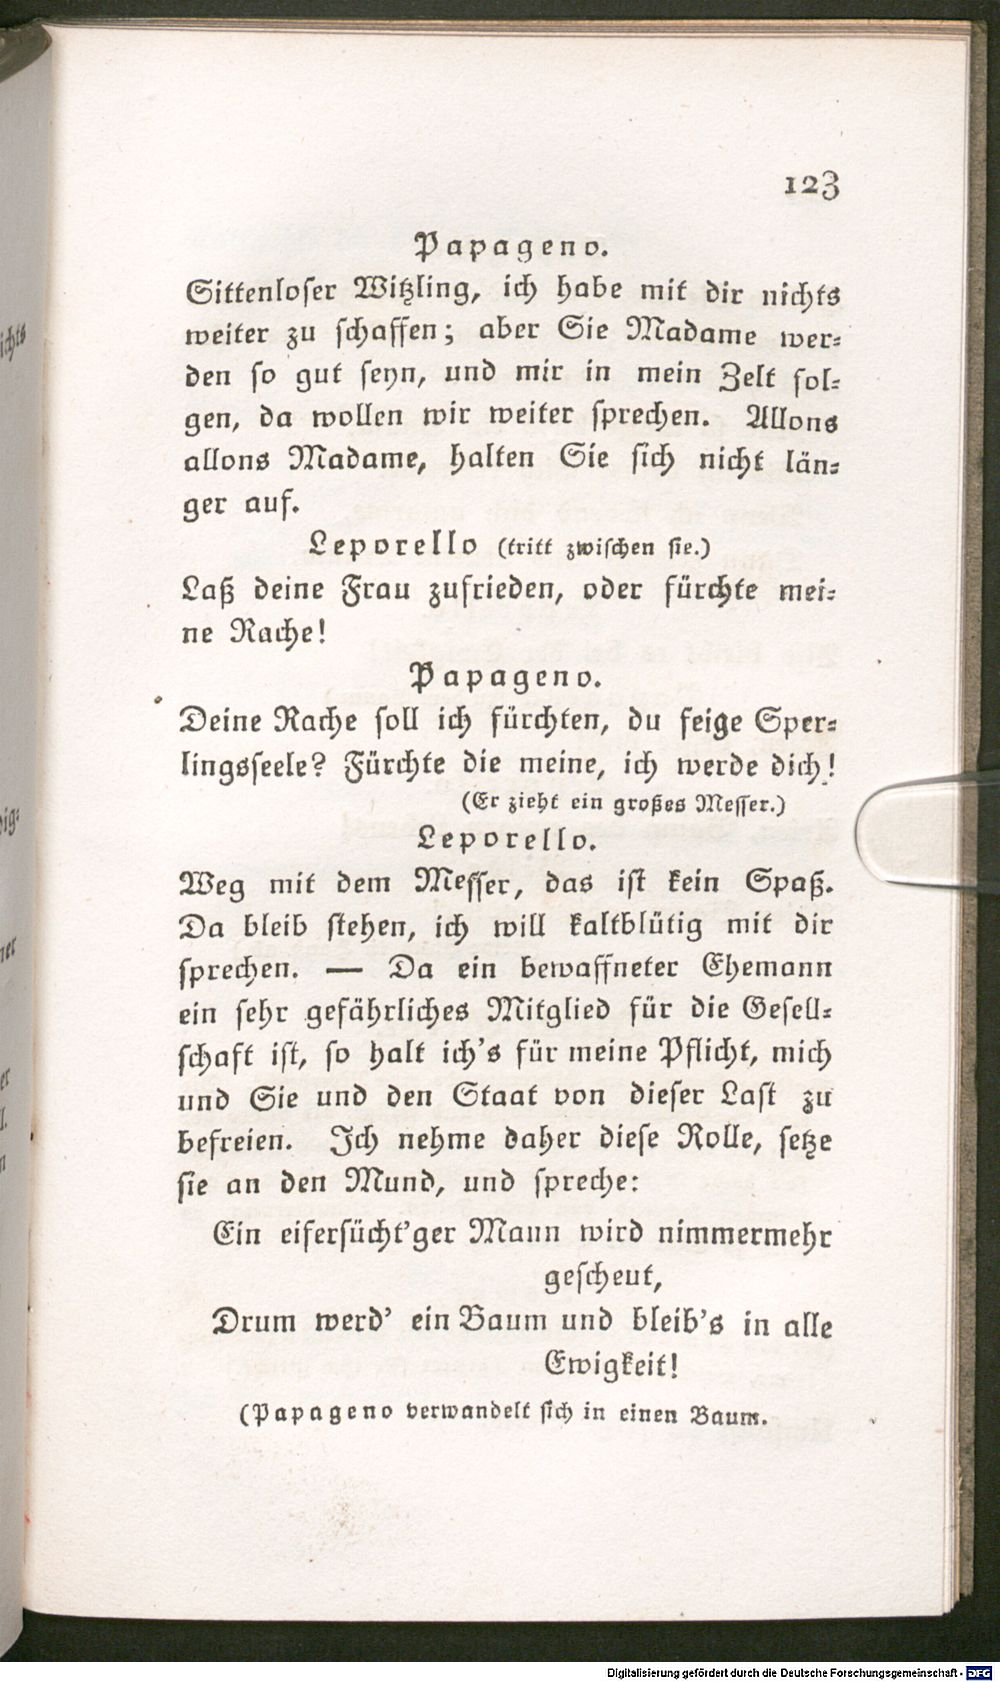 123
Papageno.
Sittenloser Witzling, ich habe mit dir nichts
weiter zu schaffen; aber Sie Madame wer-
den so gut seyn, und mir in mein Zelt fol-
gen, da wollen wir weiter sprechen. Allons
allons Madame, halten Sie sich nicht län-
ger auf.
Leporello (tritt zwischen sie.)
Laß deine Frau zufrieden, oder fürchte mei-
ne Rache!
Papageno.
Deine Rache soll ich fürchten, du feige Sper-
lingsseele? Fürchte die meine, ich werde dich!
(Er zieht ein großes Messer.)
Leporello.
Weg mit dem Messer, das ist kein Spaß.
Da bleib stehen, ich will kaltblütig mit dir
sprechen. — Da ein bewaffneter Ehemann
ein sehr gefährliches Mitglied für die Gesell-
schaft ist, so halt ich's für meine Pflicht, mich
und Sie und den Staat von dieser Last zu
befreien. Ich nehme daher diese Rolle, setze
sie an den Mund, und spreche:
Ein eifersücht'ger Mann wird nimmermehr
gescheut,
Drum werd' ein Baum und bleib's in alle
Ewigkeit!
(Papageno verwandelt sich in einen Baum.
Digitalisierung gefördert durch die Deutsche Forschungsgemeinschaft - DFG